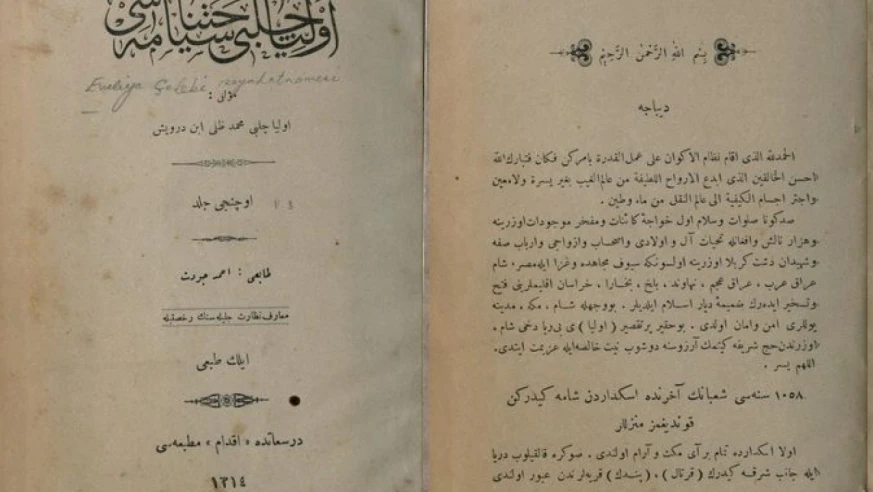 اوليا چلبى سياحتنامه سى
Evliya Çelebi seyahatnamesi
مؤلفى :
اوليا چلبى محمد ظلى ابن درويش
اوچنجى جلد
طابعى : احمد جودت
معارف نظارت جليله سنك رخصتيله
ايلك طبعى
درسعادتده « اقدام » مطبعه سى
١٣١٤
بِسْمِ اللهِ الرَّحْمنِ الرَّحِيْمِ
ديباجه
الحمدلله الذى اقام نظام الاكوان على عمل القدرة يامركن فكان فتبارك الله
احسن الخالقين الذى ابدع الارواح اللطيفة من عالم الغيب بغير يسرة ولامعين
واجتر اجسام الكيفية الى عالم النقل من ماء وطين .
صدكونا صلوات وسلام اول خواجهٔ كائنات ومفخر موجودات اوزرينه
وهزار تالش وافغانله تحيات آل و اولادى واصحاب وازواجى وارباب صفه
وشهيدان دشت كربلا اوزرينه اولسونكه سيوف مجاهده وغزا ايله مصر ، شام
عراق عرب ، عراق عجم ، نهاوند ، بلخ ، بخارا ، خراسان اقليملرينى فتح
وتسخير ايده رك ضميمهٔ ديار اسلام ايلديلر . بووجهله شام ، مكه ، مدينه
يوللرى امن وامان اولدى . بوحقير پرتقصير ( اوليا ) ى بى ريا دخى شام ،
اوزرندن حج شريفه كيتمك آرزوسنه دوشوب نيت خالصه ايله عزيمت ايتدى .
اللهم يسر .
١٠٥٨ سنه سى شعبانك آخرنده اسكداردن شامه كيدركن
قونديغمز منزللر
اولا اسكدارده تمام بر آى مكث و آرام اولندى . صوكره قالقيلوب دريا
ايله جانب شرقه كيدرك ( قرتال ) ، ( پندك ) قريه لرندن عبور اولندى